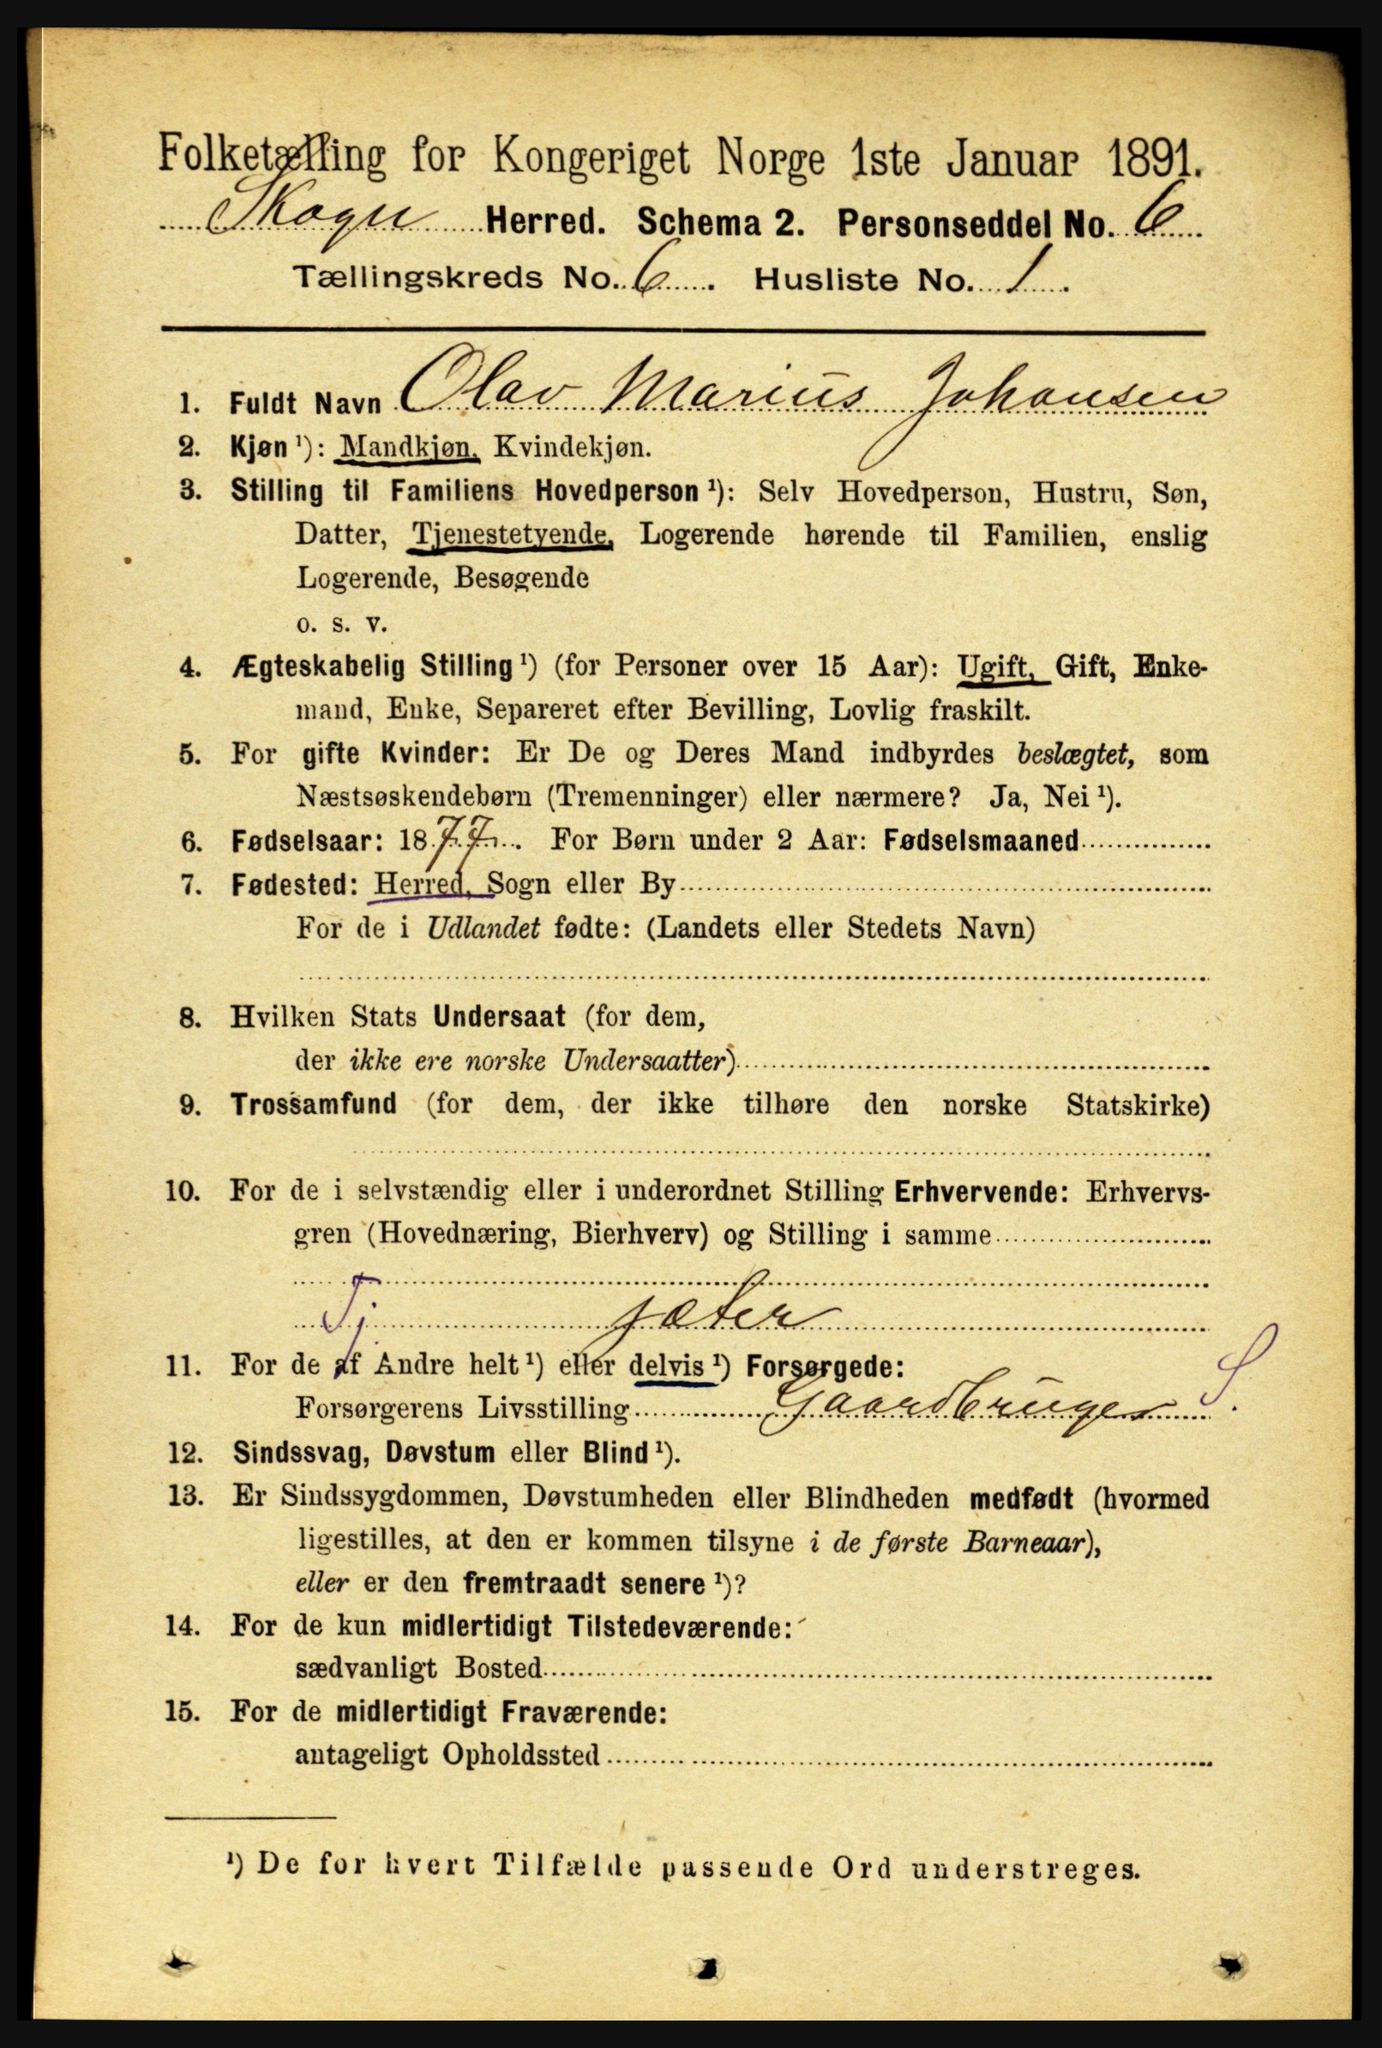 Folketælling for Kongeriget Norge 1ste Januar 1891.
Skogn Herred. Schema 2. Personseddel No. 6
Tællingskreds No. 6. Husliste No. 1.
1. Fuldt Navn Olav Marius Johansen
2. Kjøn ¹): Mandkjøn, Kvindekjøn.
3. Stilling til Familiens Hovedperson ¹): Selv Hovedperson, Hustru, Søn,
Datter, Tjenestetyende, Logerende hørende til Familien, enslig
Logerende, Besøgende
o. s. v.
4. Ægteskabelig Stilling ¹) (for Personer over 15 Aar): Ugift, Gift, Enke-
mand, Enke, Separeret efter Bevilling, Lovlig fraskilt.
5. For gifte Kvinder: Er De og Deres Mand indbyrdes beslægtet, som
Næstsøskendebørn (Tremenninger) eller nærmere? Ja, Nei ¹).
6. Fødselsaar: 1877. For Børn under 2 Aar: Fødselsmaaned
7. Fødested: Herred, Sogn eller By
For de i Udlandet fødte: (Landets eller Stedets Navn)
8. Hvilken Stats Undersaat (for dem,
der ikke ere norske Undersaatter)
9. Trossamfund (for dem, der ikke tilhøre den norske Statskirke)
10. For de i selvstændig eller i underordnet Stilling Erhvervende: Erhvervs-
gren (Hovednæring, Bierhverv) og Stilling i samme
Tj. jæter
11. For de af Andre helt ¹) eller delvis ¹) Forsørgede:
Forsørgerens Livsstilling Gaardbruger S.
12. Sindssvag, Døvstum eller Blind ¹).
13. Er Sindssygdommen, Døvstumheden eller Blindheden medfødt (hvormed
ligestilles, at den er kommen tilsyne i de første Barneaar),
eller er den fremtraadt senere ¹)?
14. For de kun midlertidigt Tilstedeværende:
sædvanligt Bosted
15. For de midlertidigt Fraværende:
antageligt Opholdssted
¹) De for hvert Tilfælde passende Ord understreges.